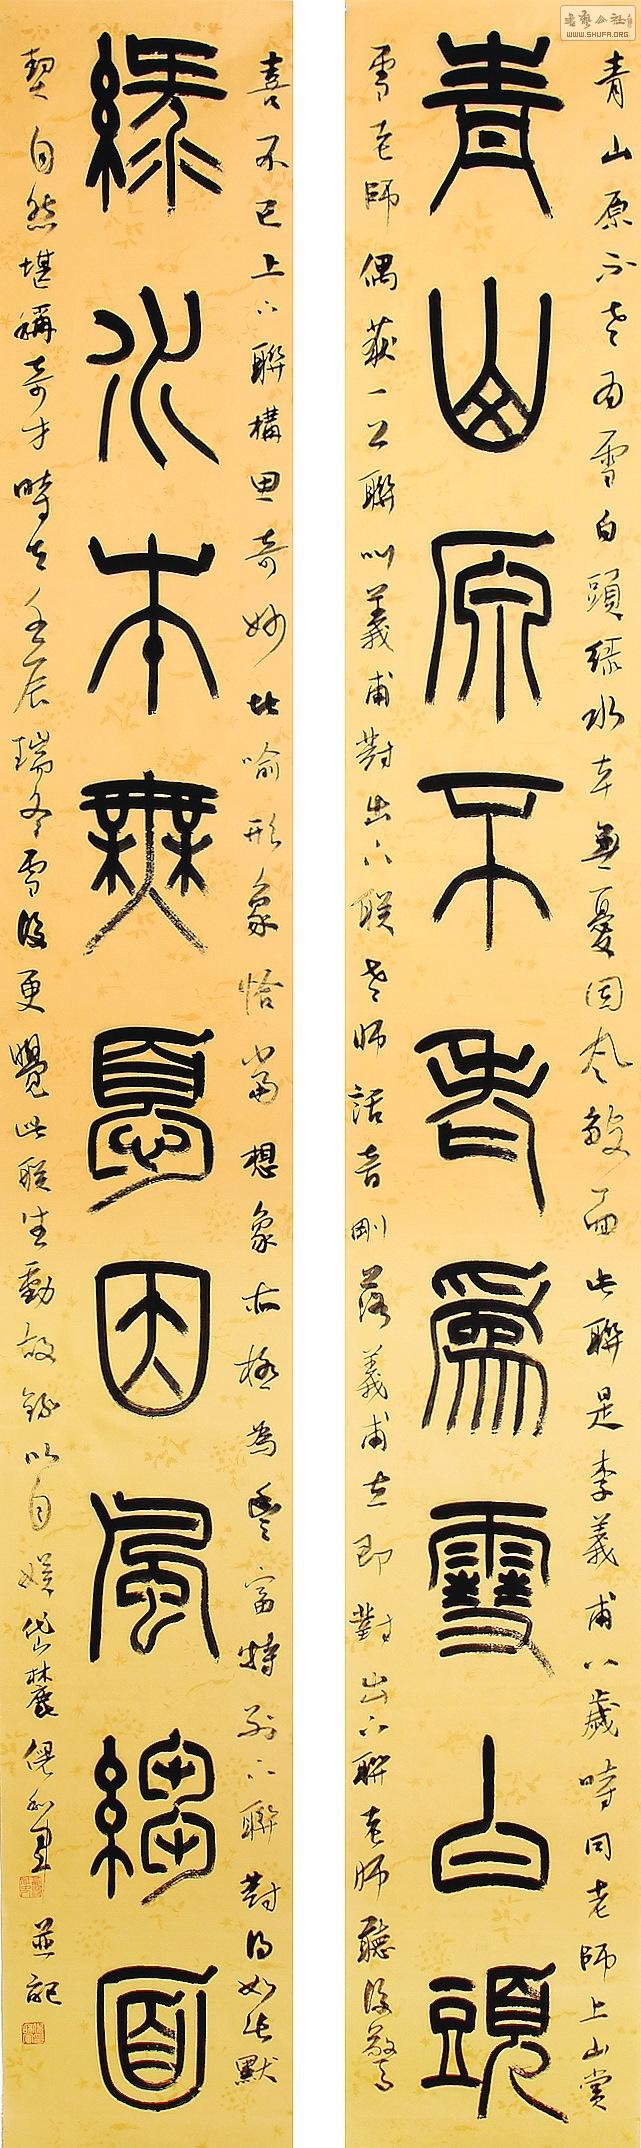 書藝公社
WWW.SHUFA.ORG
青山原不老為雪白頭綠水本無憂因風皺面此聯是李義甫八歲時同老師上山賞
青山原不老為雪白頭
雪老師偶獲一上聯叫義甫對出下联老師話音剛落義甫立即對出下聯老師聽後
喜不已上下聯構思奇妙比喻形象恰當想象亦極為豐富特別下聯對得如此默
綠水本無憂因風縐面
契自然堪稱奇才時在壬辰瑞冬雪後更覺此联生動故錄以自娛岱麓倪並記